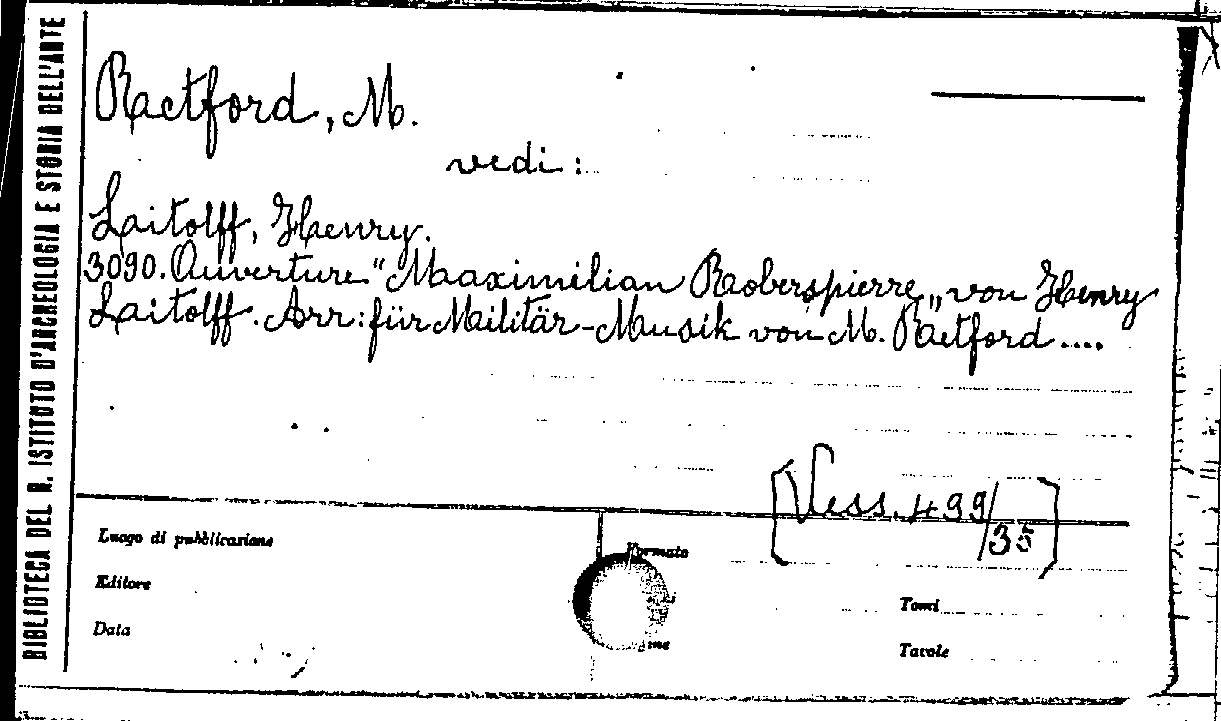 BIBLIOTECA DEL R. ISTITUTO D'ARCHEOLOGIA E STORIA DELL'ARTE
Raetford, M.
vedi:
Laitolff, Henry.
3090. Ouverture "Maaximilian Raoberspierre„ von Henry
Laitolff. Arr: für Militär-Musik von M. Raetford....
[Vess. 499/
35]
Luogo di pubblicazione
Formato
Editore
Tomi
Data
Tavole